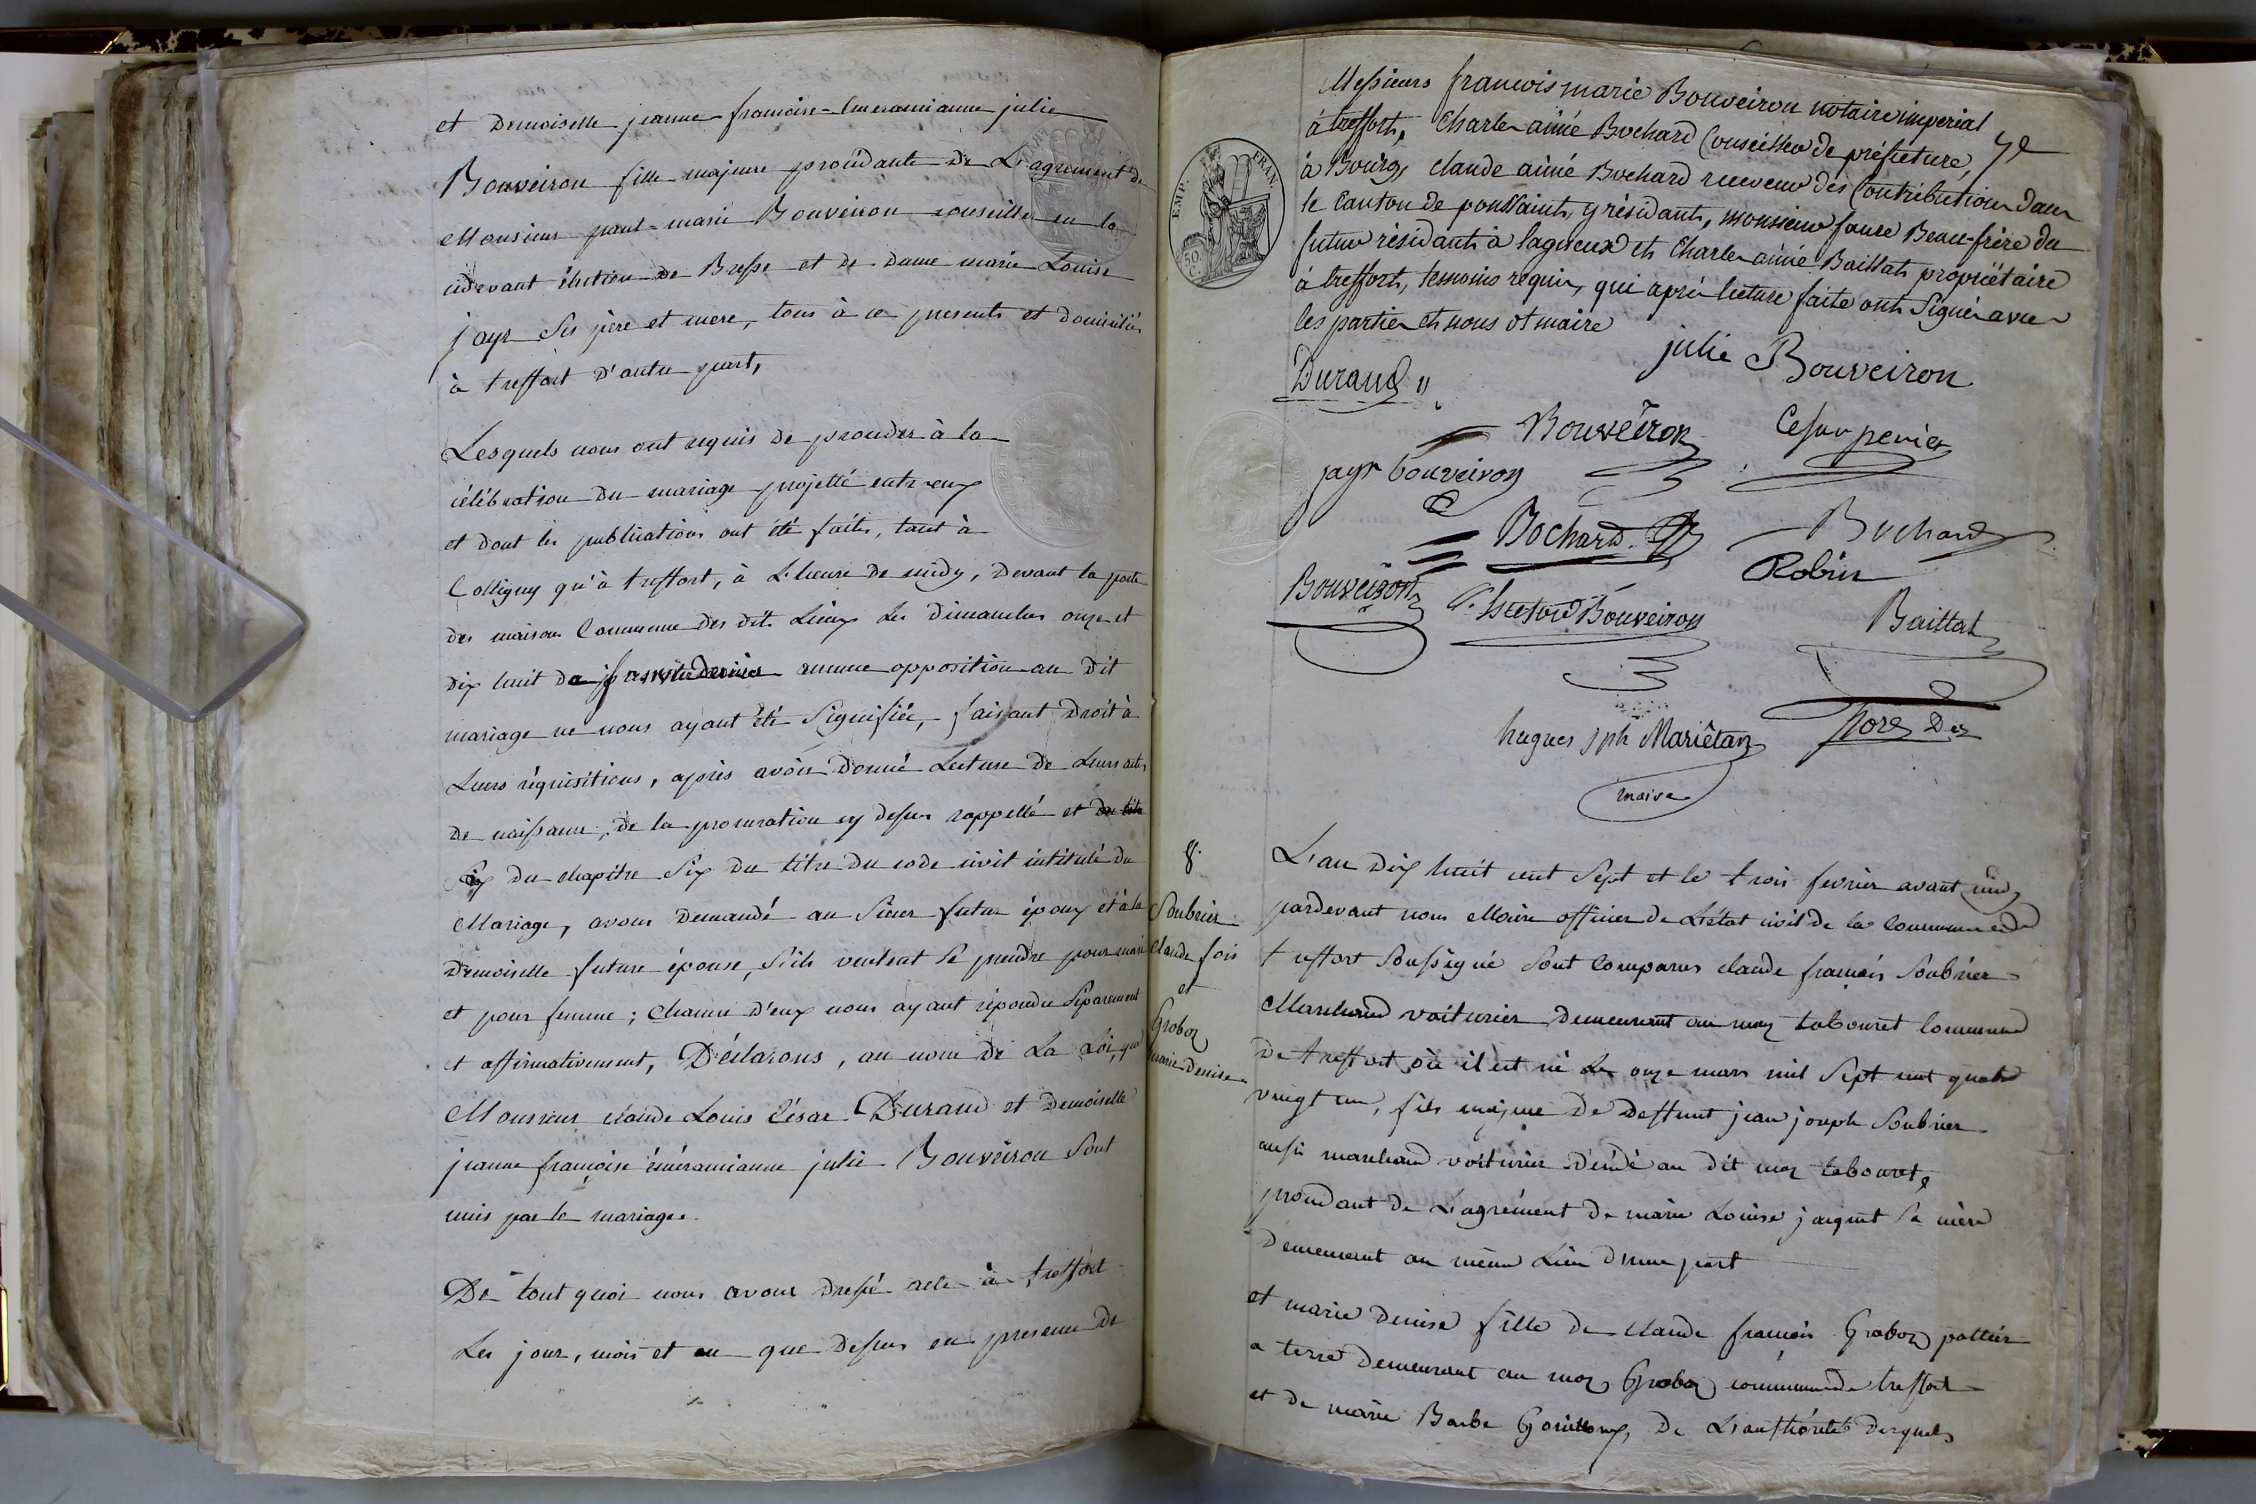 et Demoiselle jeanne françoise Emeramianne julie
Bouveiron fille majeure procédante de L'agrement de
Monsieur paul-marie Bouveiron conseiller en la
cidevant élection de Bresse et de dame marie Louise
jayr ses père et mere, tous à ce presents et domiciliés
à treffort D'autre part,
Lesquels nous ont requis de proceder à la
célébration du mariage projetté entr'eux
et dont les publications ont été faites, tant à
Colligny qu'à treffort, à L'heure de midy, devant la porte
des maisons Commune des dits Lieux Les Dimanches onze et
dix huit de janvier dernier aucune opposition au dit
mariage ne nous ayant été Signifiée, faisant Droit à
Leurs réquisitions, après avoir Donné Lecture De Leurs actes
De naissance, de la procuration cy dessus rappellé et
du chapitre Six Du titre Du code civil intitulé Du
Mariage, avons Demandé au Sieur futur époux et à la
Demoiselle future épouse, S'ils veulent Se prendre pour mari
et pour femme; Chacun d'eux nous ayant répondu Séparement
et affirmativement, Déclarons, au nom de La Loi, que
Monsieur claude Louis César Durand et Demoiselle
jeanne françoise éméramianne julie Bouveiron Sont
unis par le mariage.
De tout quoi nous avons Dressé acte à treffort
Les jour, mois et an que Dessus en presence De
Messieurs francois marie Bouveiron notaire imperial
à treffort, Charles aimé Bochard Conseiller de préfecture,
à Bourg, claude aimé Bochard receveur des Contributions dans
le Canton de pontdaint, y résidant, monsieur faure Beau-frère du
futur résidant à lagnieux et Charles aimé Baillat propriétaire
à treffort, temoins requis, qui après lecture faite ont Signé avec
les parties et nous dt maire
E.M.P. FRAN.
50 C.
julie Bouveiron
Durand
Bouveiron
Cesar perier
jayr bouveiron
Bochard
Bochard
Robin
Bouveiron
Bouveiron
Baillat
hugues jph Mariétan
maire
8.
Soubrier
claude fois
et
Groboz
marie Denise
L'an Dix huit cent Sept et le trois fevrier avant midy
pardevant nous Maire officier de L'état civil de la Commune de
treffort Soussigné Sont Comparus claude françois Soubrier
Marchand voiturier Demeurant au maz tabouret Commune
De treffort où il est né Le onze mars mil Sept cent quatre
vingt un, fils majeur De Deffunt jean joseph Soubrier
aussi marchand voiturier Décédé au Dit maz tabouret,
procedant de L'agrément De marie Louise jacquet Sa mère
Demeurant au même Lieu D'une part
et marie denise fille de claude françois Groboz pottier
a terre Demeurant au maz Groboz commune de treffort
et de marie Barbe, De L'authorité Desquels